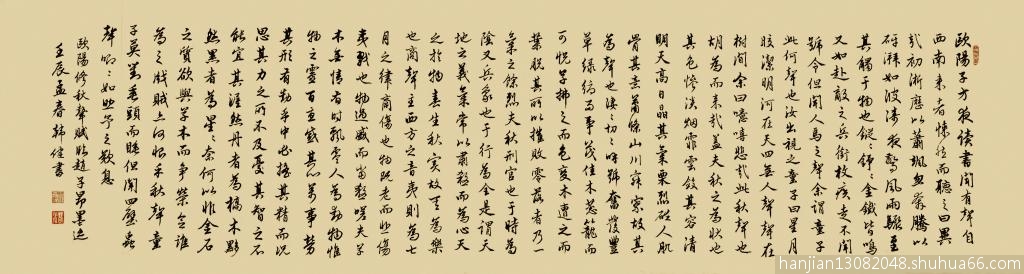 歐陽子方夜讀書聞有聲自
西南來者悚然而聽之曰異
哉初淅瀝以蕭颯忽奔騰以
砰湃如波濤夜驚風雨驟至
其觸于物也鏦鏦錚錚金鐵皆鳴
又如赴敵之兵銜枚疾走不聞
號令但聞人馬之聲余謂童子
此何聲也汝出視之童子曰星月
皎潔明河在天四無人聲聲在
樹間余曰噫嘻悲哉此秋聲也
胡為而來哉蓋夫秋之為狀也
其色慘淡烟霏雲斂其容清
明天高日晶其氣栗烈砭人肌
骨其意蕭條山川寂寥故其
為聲也淒淒切切呼號奮發豐
草綠縟而爭茂佳木蔥籠而
可悅草拂之而色變木遭之而
葉脫其所以摧敗零落者乃一
氣之餘烈夫秋刑官也于時為
陰又兵象也于行為金是謂天
地之義氣常以肅殺而為心天
之於物春生秋實故其為樂
也商聲主西方之音夷則為七
月之律商傷也物既老而悲傷
夷戮也物過盛而當殺嗟夫草
木無情有時飄零人為動物惟
物之靈百憂感其心萬事勞
其形有動乎中必搖其精而況
思其力之所不及憂其智之所不
能宜其渥然丹者為槁木黟
然黑者為星星奈何以非金石
之質欲與草木而爭榮念誰
為之戕賊亦何恨乎秋聲童
子莫對垂頭而睡但聞四壁蟲
聲唧唧如助予之歎息
歐陽修秋聲賦臨趙子昂墨迹
壬辰孟春韓健書
hanjian13082048.shuhua66.com